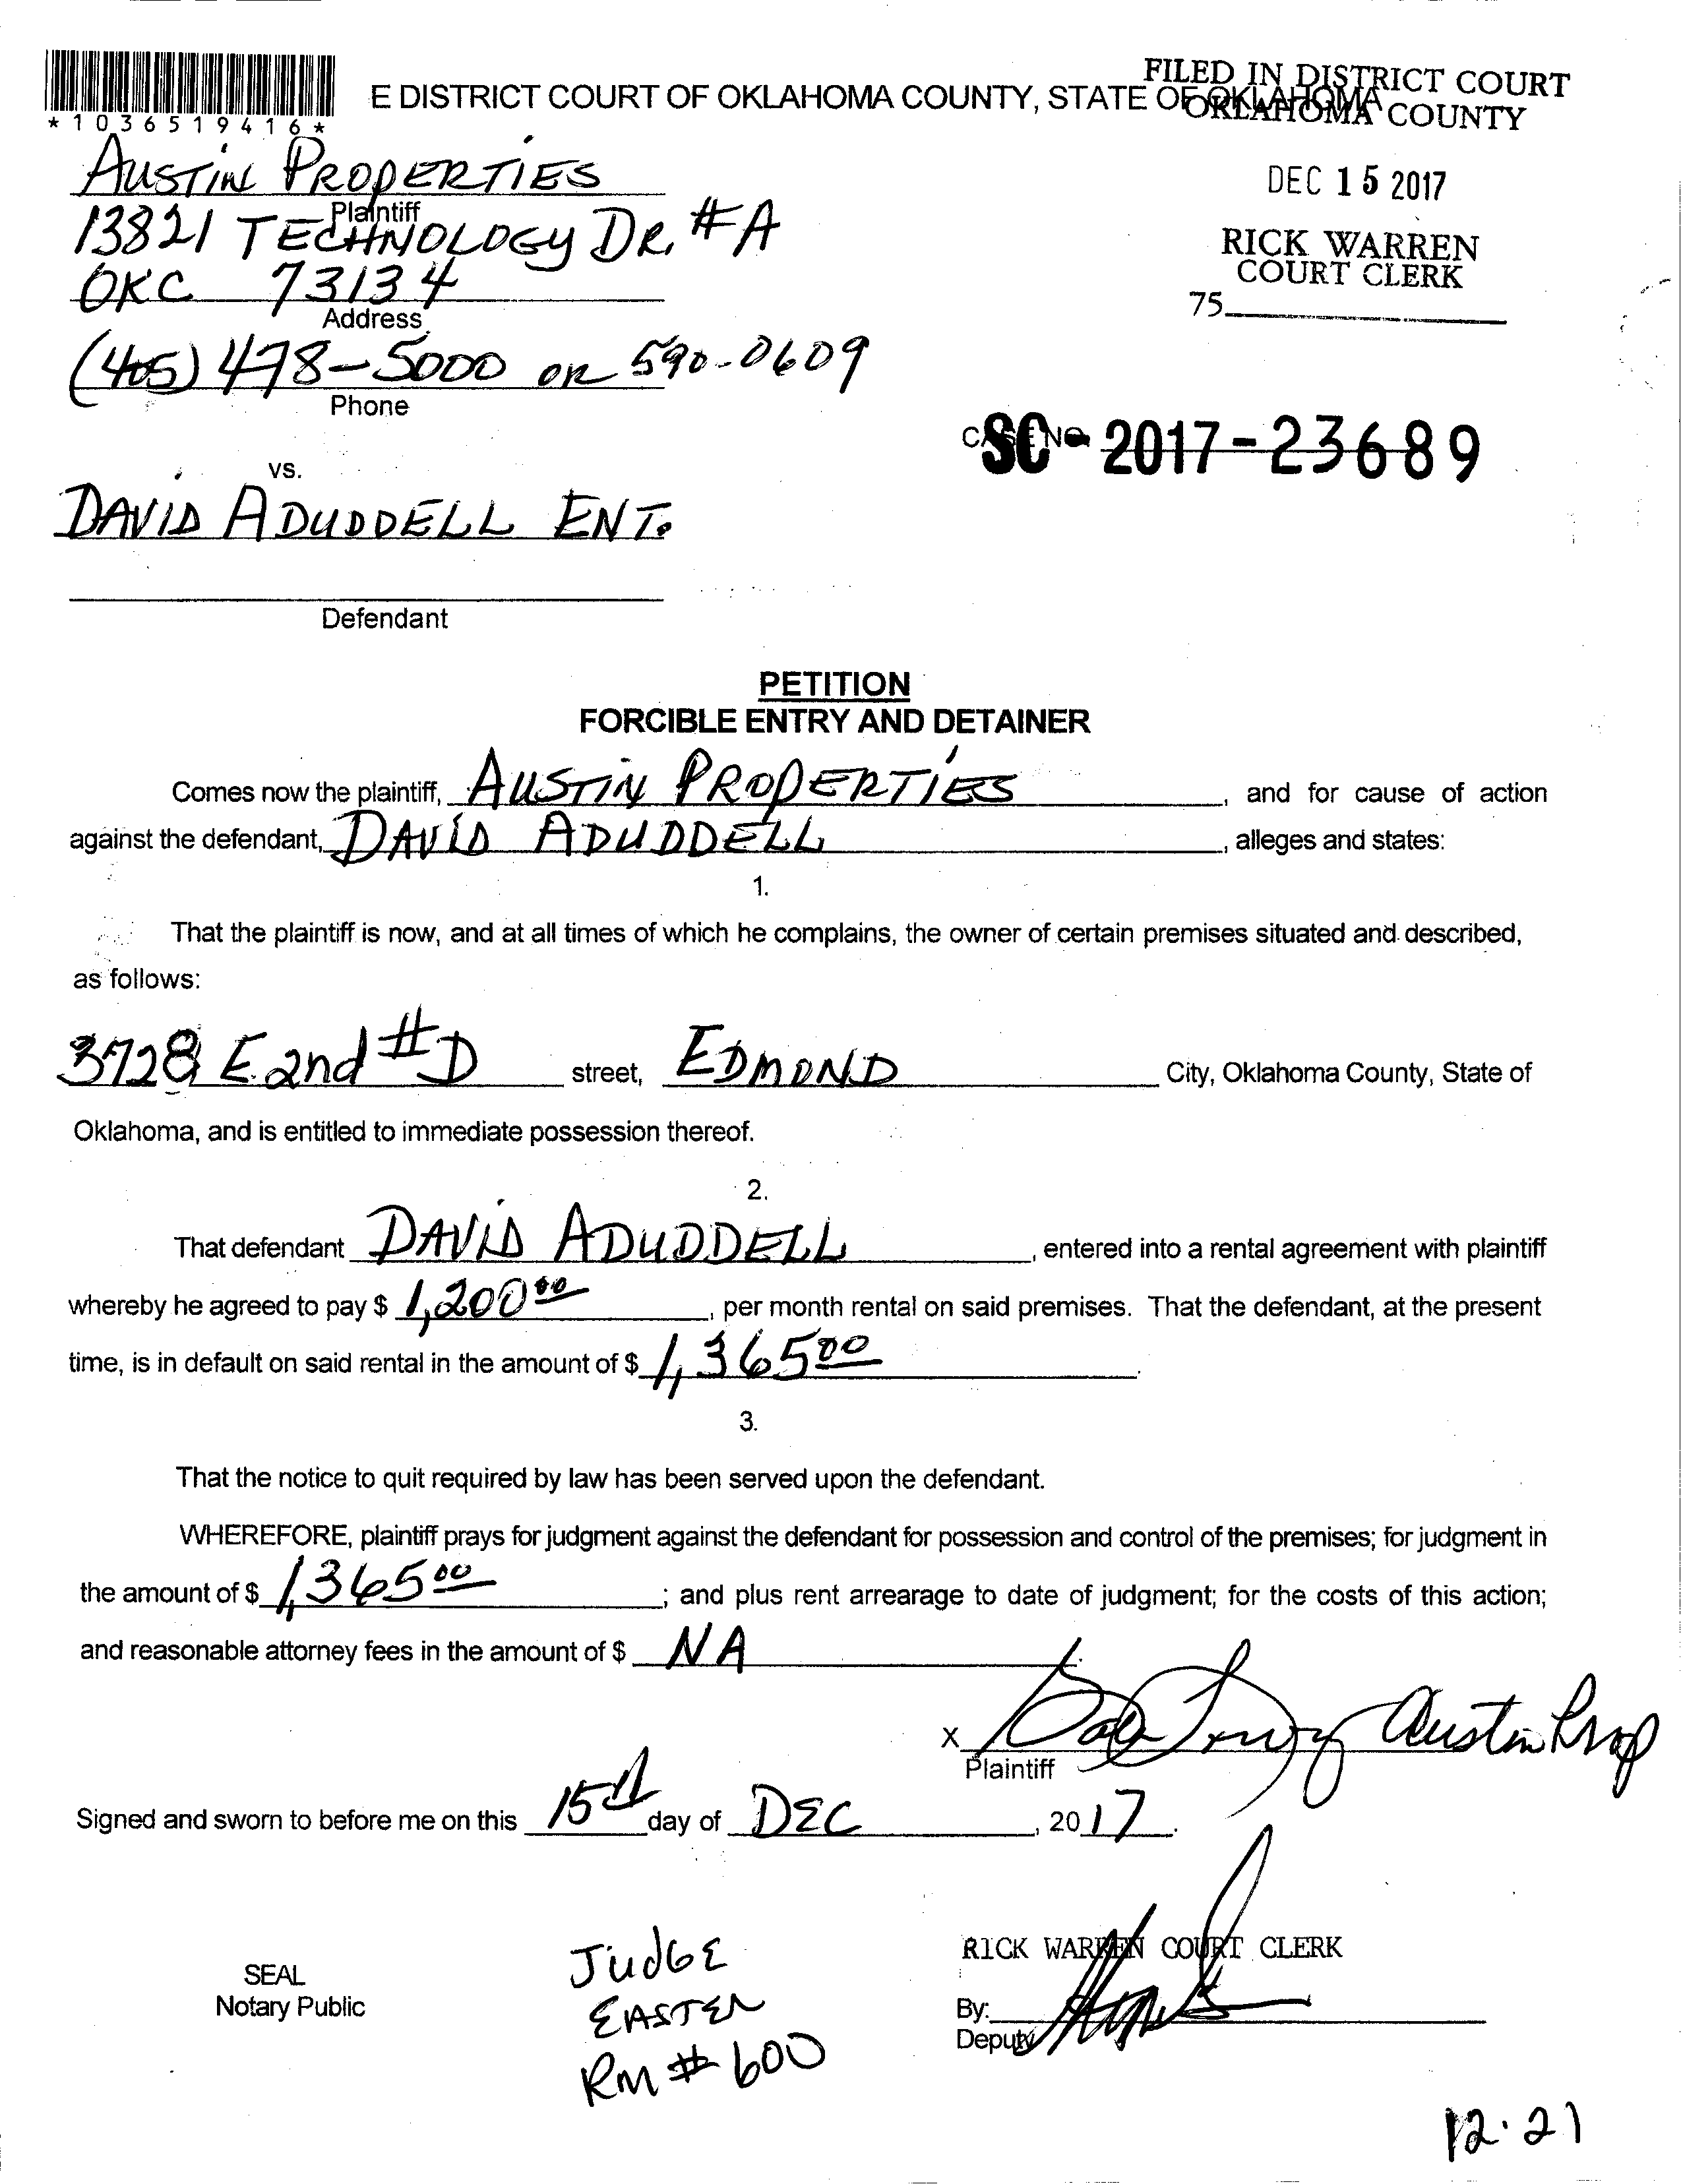 *1036519416*
E DISTRICT COURT OF OKLAHOMA COUNTY, STATE OF OKLAHOMA
FILED IN DISTRICT COURT
OKLAHOMA COUNTY
DEC 15 2017
RICK WARREN
COURT CLERK
75
AUSTIN PROPERTIES
Plaintiff
13821 TECHNOLOGY DR. #A
OKC 73134
Address
(405) 478-5000 OR 590-0609
Phone
CASE NO.
SC-2017-23689
vs.
DAVID ADUDDELL ENT.
Defendant
PETITION
FORCIBLE ENTRY AND DETAINER
Comes now the plaintiff, AUSTIN PROPERTIES, and for cause of action
against the defendant, DAVID ADUDDELL, alleges and states:
1.
That the plaintiff is now, and at all times of which he complains, the owner of certain premises situated and described,
as follows:
3728 E 2nd #D street, EDMOND City, Oklahoma County, State of
Oklahoma, and is entitled to immediate possession thereof.
2.
That defendant DAVID ADUDDELL, entered into a rental agreement with plaintiff
whereby he agreed to pay $ 1,200 00, per month rental on said premises. That the defendant, at the present
time, is in default on said rental in the amount of $ 1,365 00.
3.
That the notice to quit required by law has been served upon the defendant.
WHEREFORE, plaintiff prays for judgment against the defendant for possession and control of the premises; for judgment in
the amount of $ 1,365 00; and plus rent arrearage to date of judgment; for the costs of this action;
and reasonable attorney fees in the amount of $ NA.
X Austin Prop
Plaintiff
Signed and sworn to before me on this 15th day of DEC, 2017.
SEAL
Notary Public
JUDGE
EASTER
RM # 600
RICK WARREN COURT CLERK
By:
Deputy
12.21